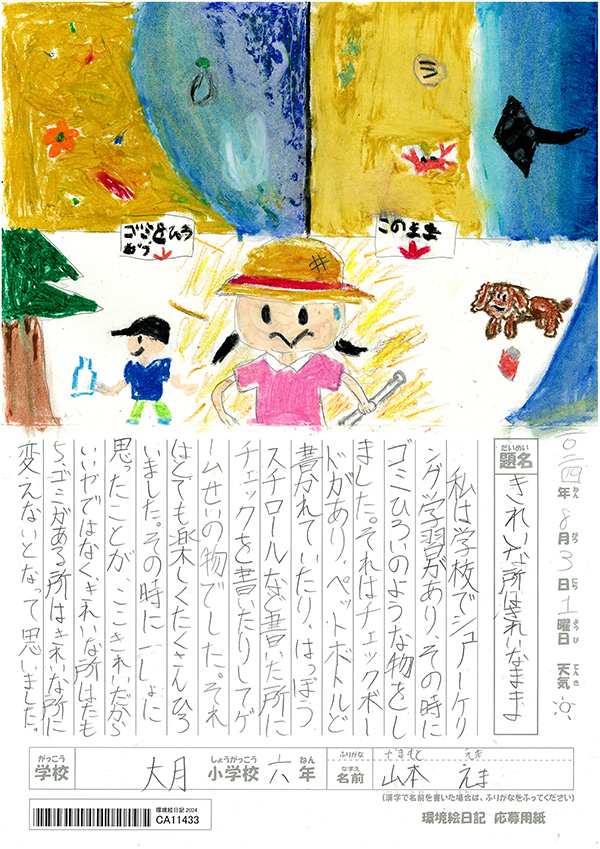 このまま
二〇二四年8月3日土曜日 天気
ねん がつ にち ようび てんき
だいめい
題名 きれいな所はきれいなままよ
私は学校でショアーケリ
ング学習があり、その時に
ゴミひろいのような物をし
ました。それはチェックボー
ドがあり、ペットボトルと
書かれていたり、はっぽう
スチロールなど書いた所に
チェックを書いたりしてゲ
ームせいの物でした。それ
はとても楽しくたくさんひろ
いました。その時に一しょに
思ったことが、ここきれいだから
いいやではなく、きれいな所はたも
ち、ゴミがある所はきれいな所に
変えないとなって思いました。
がっこう しょうがっこう ねん
学校 大月 小学校 六 年
ふりがな やまもと えま
なまえ
名前 山本 えま
(漢字で名前を書いた場合は、ふりがなをふってください)
環境絵日記 2024
CA11433
環境絵日記 応募用紙